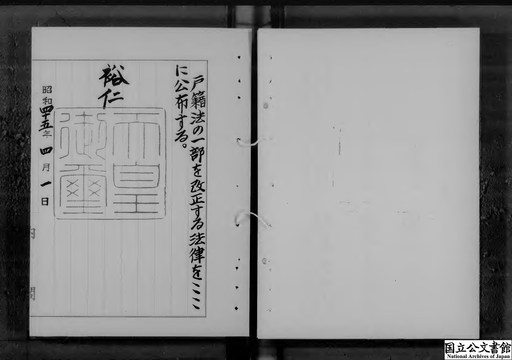 戸籍法の一部を改正する法律をここ
に公布する。
裕仁
天皇
御璽
昭和四十五年四月一日
内閣
国立公文書館
National Archives of Japan